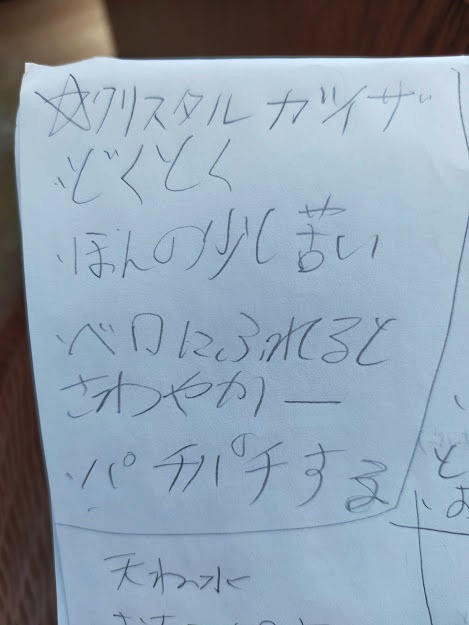 ☆クリスタルガイザー
・どくとく
・ほんの少し苦い
・ベロにふれると
さわやかー
・パチパチする
天ねん水
と